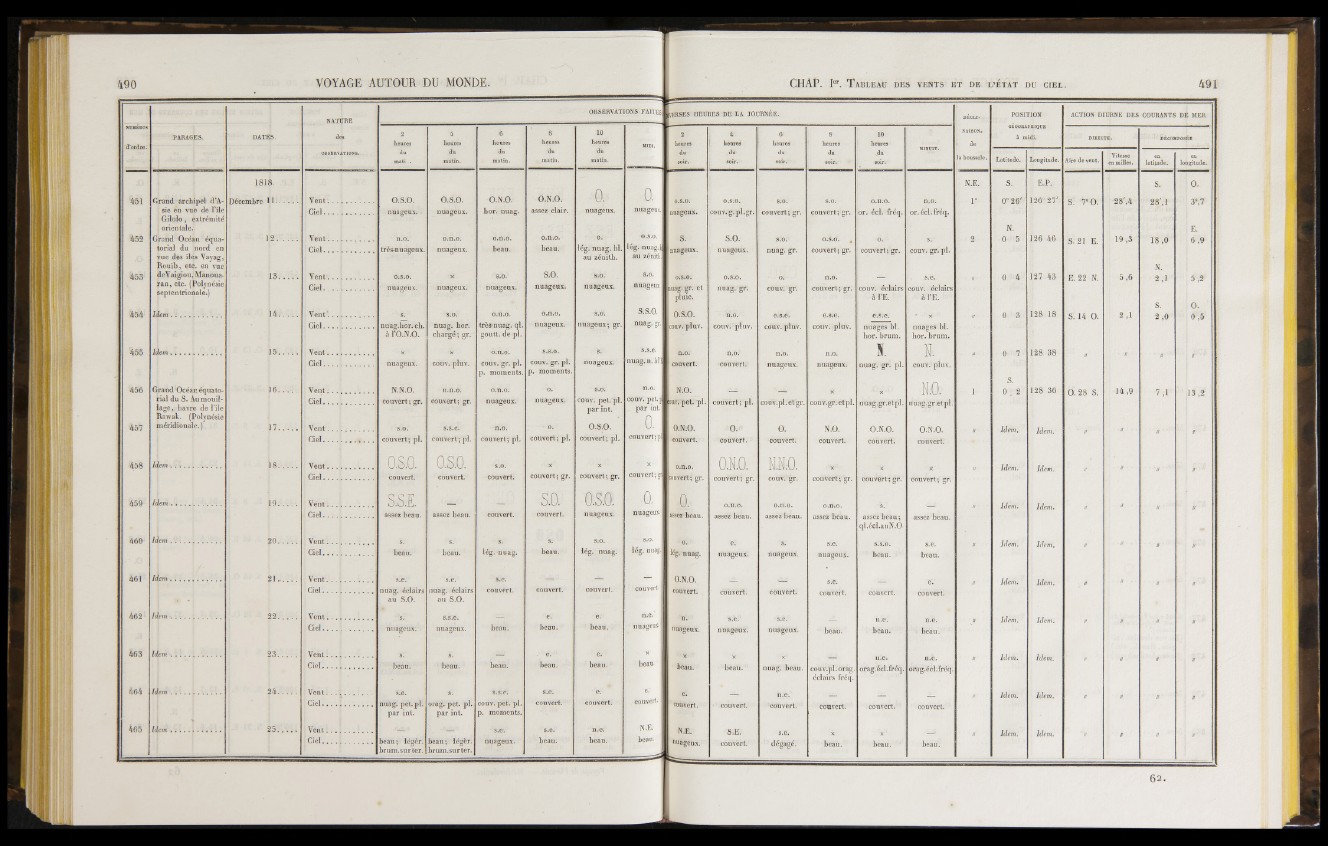 490 VOYAGE AUTOUR DU MONDE.
NUMÉROS d'ordre. PARAGES. DATES. NATURE des OBSERVATIONS. OBSERVATIONS FAITES
2 heures du matin. 4 heures du matin. 6 heures du matin. 8 heures du matin. 10 heures du matin. MIDI.
1818.
451 Grand archipel d'A- Décembre 11 Vent O.S.O. O.S.O. O.N.O. O.N.O. O. O.
sie en vue de l'île Ciel nuageux. nuageux. hor. nuag. assez clair. nuageux. nuageux.
Gilolo, extrémité
orientale.
452 Grand Océan équa- 12 Vent n.o. o.n.o. o.n.o. o.n.o. o. o.s.o.
torial du nord en Ciel très-nuageux. nuageux. beau. beau. lég. nuag. lil. lég. nuag.
vue des îles Vayag, au zénith. au zénith
Rouib, etc. en vue
453 de Vaigiou, Manoua- 13 Vent o.s.o. × s.o. S.O. s.o. s.o.
ran, etc. (Polynésie Ciel nuageux. nuageux. nuageux. nuageux. nuageux. nuageux
septentrionale.)
454 Idem 14 Vent s. s.o. o.n.o. o.n.o. s.o. S.S.O.
Ciel nuag.hor.ch. nuag. hor. très-nuag. ql. nuageux. nuageux; gr. nuag. gr.
à l'O.N.O. chargé; gr. goutt. de pl.
455 Idem 15 Vent × × o.n.o. s.s.o. s. s.s.e.
Ciel nuageux. couv. pluv. couv. gr. pl. couv. gr. pl. nuageux.
p. moments. p. moments.
456 Grand Océan équato- 16 Vent N.N.O. n.n.o. o.n.o. o. s.o. n.o.
rial du S. Au mouil- Ciel couvert; gr. couvert; gr. nuageux. nuageux. couv. pet. pl. couv. pet. p
lage, havre de l'île par int. par int.
Rawak. (Polynésie
457 méridionale.) 17 Vent s.o. s.s.e. n.o. o. O.S.O. O.
Ciel couvert; pl. couvert; pl. couvert; pl. couvert; pl. couvert; pl. couvert; pl
458 Idem 18 Vent O.S.O. O.S.O. s.o. × × ×
Ciel couvert. couvert. couvert. couvert; gr. couvert; gr. couvert; g
459 Idem 19 Vent S.S.E. — — S.O. O.S.O. O.
Ciel assez beau. assez beau. couvert. couvert. nuageux. nuageux
460 Idem 20 Vent s. s. s. s. s.o. s.o
Ciel beau. beau. lég. nuag. beau. lég. nuag. lég. nuag.
461 Idem 21 Vent s.e. s.e. s.e. — — —
Ciel nuag. éclairs nuag. éclairs couvert. couvert. couvert. couvert
au S.O. au S.O.
462 Idem 22 Vent s. s.s.e. — e. e. n.o.
Ciel nuageux. nuageux. beau. beau. beau. nuageux
463 Idem 23 Vent s. s. — e. e. ×
Ciel beau. beau. beau. beau. beau. beau
464 Idem 24 Vent s.e. s. s.s.e. s.e. e. e.
Ciel nuag. pet. pl. orag. pet. pl. couv. pet. pl. couvert. couvert. couvert.
par int. par int. p. moments.
465 Idem 25 Vent — — s.e. s.e. n.e. N.E.
Ciel beau; légèr. beau; légèr. nuageux. beau. beau. beau.
brum. sur ter. brum. sur ter.
CHAP. Ier. TABLEAU DES VENTS ET DE L'ÉTAT DU CIEL. 491
DIVERSES HEURES DE LA JOURNÉE. DÉCLINAISON. de la boussole. POSITION GÉOGRAPHIQUE à midi. ACTION DIURNE DES COURANTS DE MER
2 heures du soir. 4 heures du soir. 6 heures du soir. 8 heures du soir. 10 heures du soir. MINUIT. Latitude. Longitude. DIRECTE. Aire de vent. Vitesse en milles. DÉCOMPOSÉE en latitude. en longitude.
N.E. S. E.P. S. O.
s.s.o. o.s.o. s.o. s.o. o.n.o. n.o. 1° 0°26' 126°27' S. 7° O. 28',4 28',1 3',7
nuageux. couv.g.pl.gr. couvert; gr. couvert; gr. or. écl. fréq. or. écl. fréq.
N. E.
S. S.O. s.o. o.s.o. o. s. 2 0 5 126 46 S. 21 E. 19,3 18,0 6,9
nuageux. nuageux. nuag. gr. couvert; gr. couvert; gr. couv. gr. pl.
N.
o.s.o. o.s.o. o. n.o. — s.e. 0 4 127 43 E. 22 N. 5,6 2,1 5,2
nuag. gr. et nuag. gr. couv. gr. couvert; gr. couv. éclairs couv. éclairs
pluie. à l'E. à l'E.
S. O.
O.S.O. n.o. e.s.e. e.s.e. e.s.e. × 0 3 128 18 S. 14 O. 2,1 2,0 0,5
couv. pluv. couv. pluv. couv. pluv. couv. pluv. nuages bl. nuages bl.
hor. brum. hor. brum.
n.o. n.o. n.o. n.o. N. N. 0 7 128 38
couvert. couvert. nuageux. nuageux. nuag. gr. pl. couv. pluv.
S.
N.O. — — × × N.O. 1 0 2 128 36 O. 28 S. 14,9 7,1 13,2
couv. pet. pl. couvert; pl. couv.pl.et gr. couv.gr.et pl. nuag.gr.et pl. nuag.gr.et pl.
O.N.O. O. O. N.O. O.N.O. O.N.O. Idem. Idem.
couvert. couvert. couvert. couvert. couvert. couvert.
o.n.o. O.N.O. N.N.O. × × × Idem. Idem.
couvert; gr. couvert; gr. couv. gr. couvert; gr. couvert; gr. couvert; gr.
O. o.n.o. o.n.o. o.n.o. s. — Idem. Idem.
assez beau. assez beau. assez beau. assez beau. assez beau; assez beau.
ql.écl.auN.O
o. e. s. s.e. s.s.o. s.e. Idem. Idem.
lég. nuag. nuageux. nuageux. nuageux. beau. beau.
O.N.O. — — s.e. — e. Idem. Idem.
couvert. couvert. couvert. couvert. couvert. couvert.
n. s.e. s.e. — n.e. n.e. Idem. Idem.
nuageux. nuageux. nuageux. beau. beau. beau.
× × × — n.e. n.e. Idem. Idem.
beau. beau. nuag. beau. couv.pl.orag. orag.écl.fréq. orag.écl.fréq.
éclairs fréq.
e. — n.e. — — — Idem. Idem.
couvert. couvert. couvert. couvert. couvert. couvert.
N.E. S.E. s.e. × × — Idem. Idem.
nuageux. couvert. dégagé. beau. beau. beau.
62.